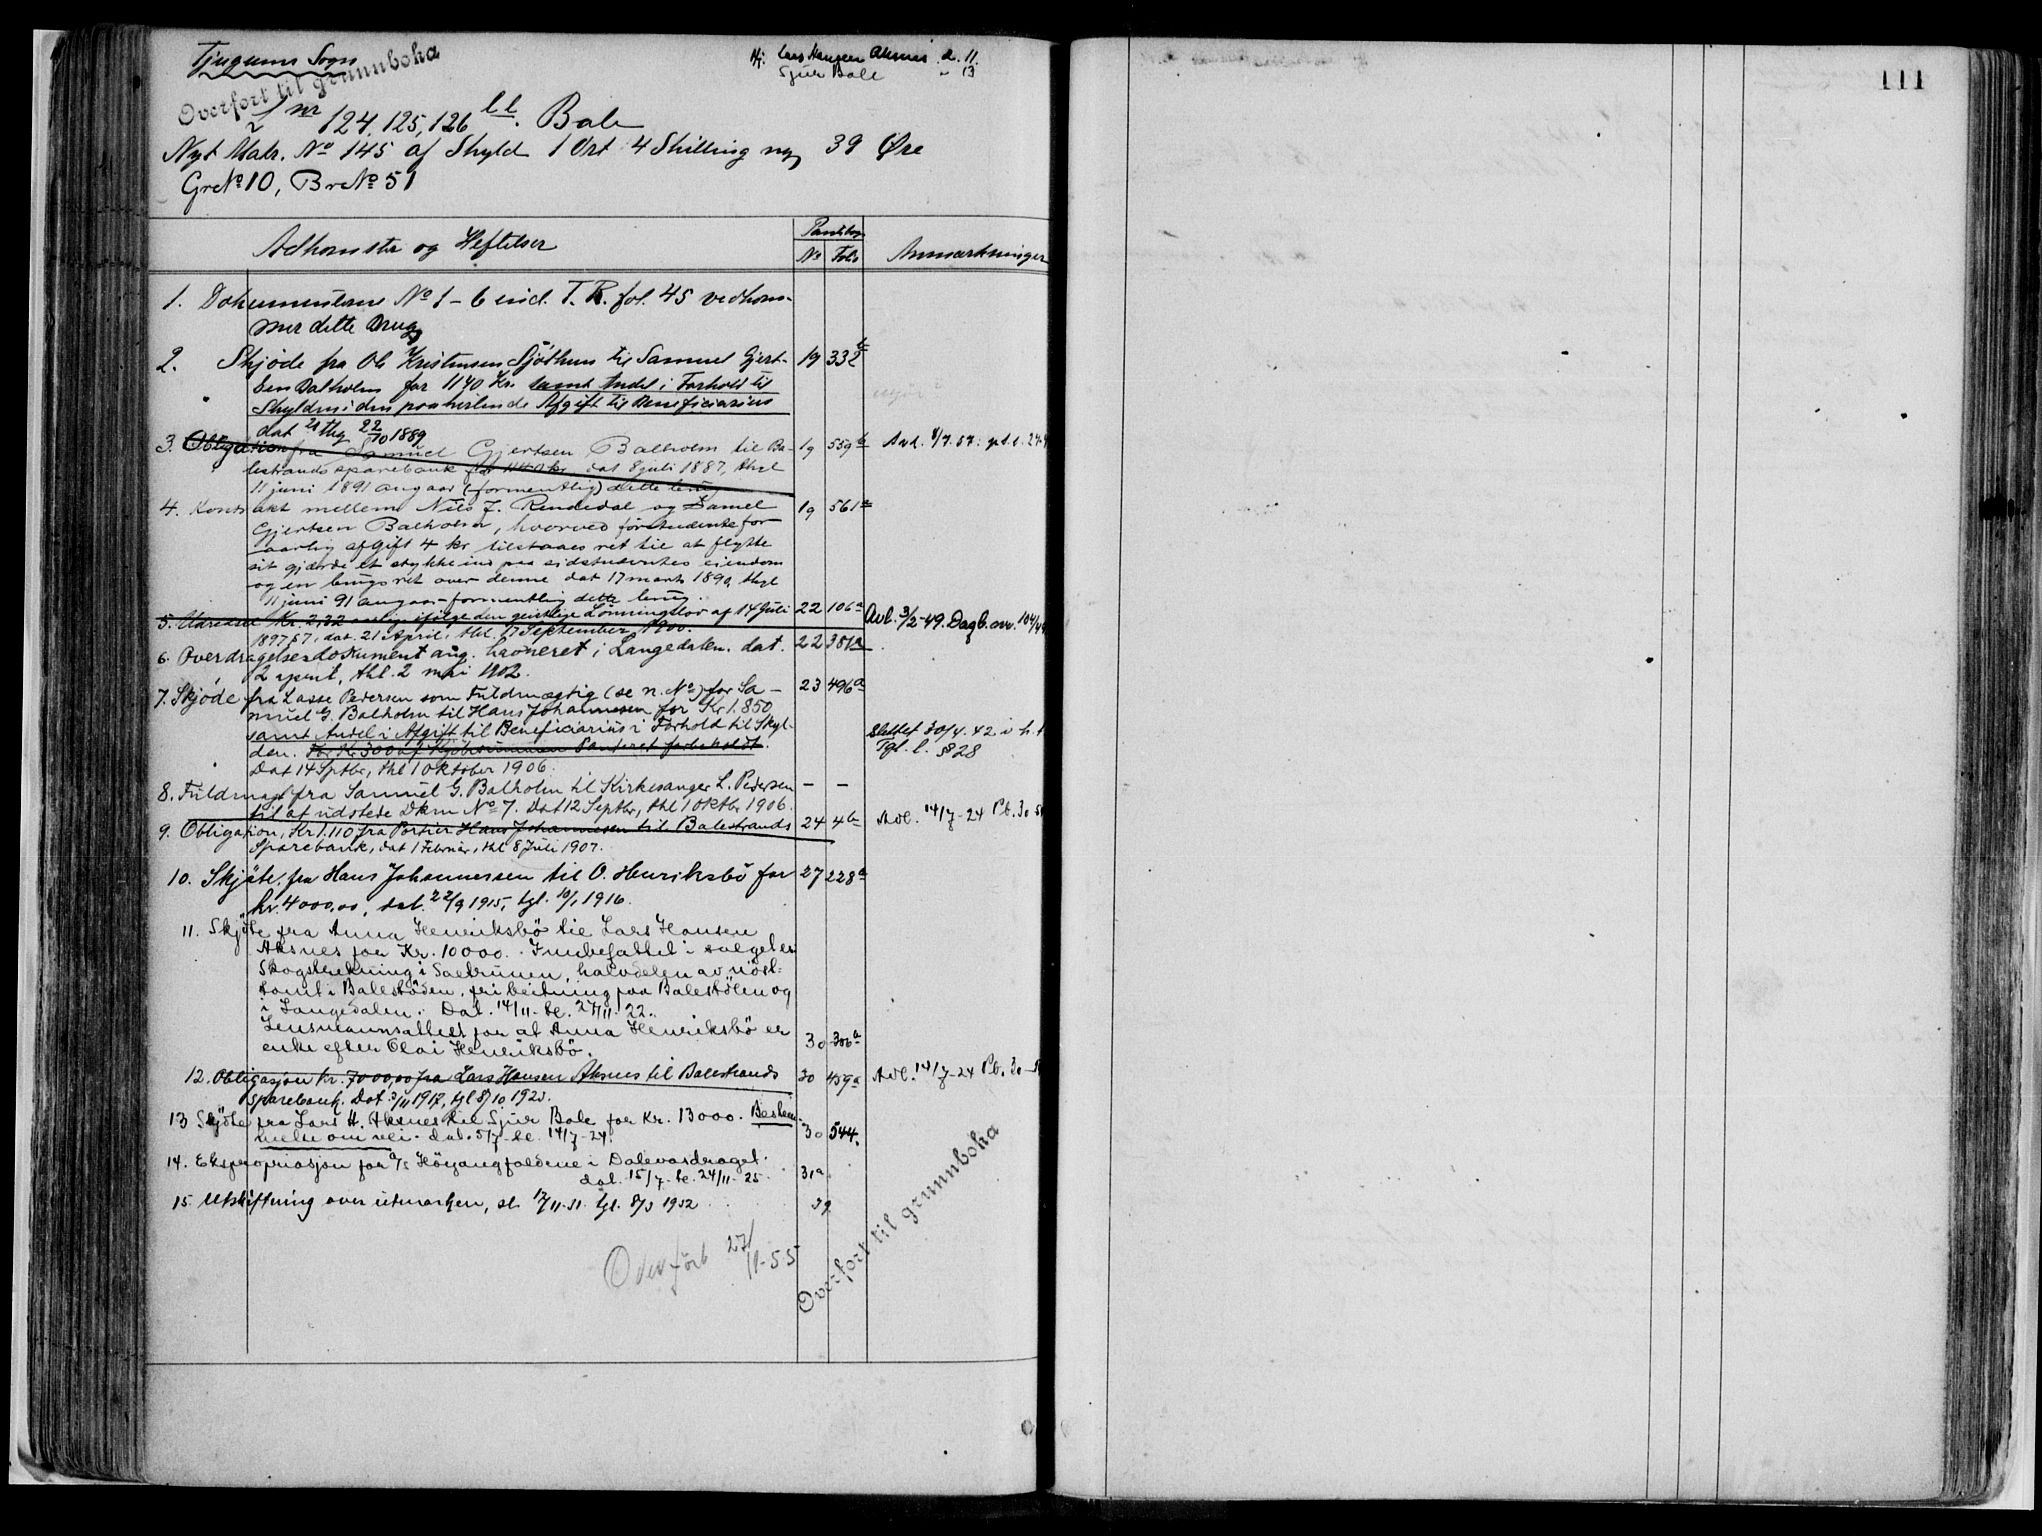 Tjugums Sogn
Overført til grunnboka
Hj: Lars Hansen Aksnes d. 11.
Sjur Bale " 13
L nr 124, 125, 126 ll. Bale
Nyt Matr. No 145 af Skyld 1 Ort 4 Skilling ny 39 Øre
Gr No 10, Br No 51
Adkomster og Heftelser
Pantebog
No Folio
Anmærkninger
1. Dokumenterne No 1-6 incl. T. R. fol. 45 vedkom-
mer dette Brug
2. Skjøde fra Ole Kristensen Sjøthun til Samuel Gjert- 19 332 b
sen Balholm for 1140 Kr. samt Andel i Forhold til
Skylden i den paaheilende Afgift til Beneficiarius
dat 21 thg 22/10 1889
3. Obligation fra Samuel Gjertsen Balholm til Ba- 19 559 b Avl. 8/7.57.
lestrands sparebank for 1140 kr dat 8 juli 1887, thgl
11 juni 1891 angaar (formentlig) dette brug
4. Kontrakt mellem Nils J. Rendedal og Samel 19 561 a
Gjertsen Balholm, hvorved førstnevnte for
aarlig afgift 4 kr tilstaaes ret til at flytte
sit gjærde et stykke ind paa sidstnævntes eiendom
og en brugsret over denne dat 17 marts 1890, thgl
11 juni 91 angaar formentlig dette brug.
5. Udredsel Kr. 2,32 aarlig ifølge den geistlige Lønningslov af 14 Juli 22 106 a Avl. 3/2-49. Dagb. nr. 104/49
1897 § 7, dat. 21 April, thl. 17 September 1900.
6. Overdragelsesdokument ang. kværneret i Langedalen. dat. 22 381 a
2 april, thl. 2 mai 1902.
7. Skjøde fra Lasse Pedersen som Fuldmægtig (se n. No) for Sa- 23 496 a
muel G. Balholm til Hans Johannesen for Kr 1.850
samt Andel i Afgift til Beneficiarius i Forhold til Skyl-
den. For Kr 300 af Kjøbesummen Panteret forbeholdt.
Dat 14 Septbr, thl 1 Oktober 1906.
Slettet 30/4.42 i h. t.
Tgl. l. § 28
8. Fuldmagt fra Samuel G. Balholm til Kirkesanger L. Pedersen — —
til at udstede Dkm No 7. Dat 12 Septbr, thl 1 Oktbr 1906.
9. Obligation, Kr 1.110 fra Portier Hans Johannesen til Balestrands 24 4 b Avl. 14/7-24 Pb. 30
Sparebank, dat 1 Februar, thl 8 Juli 1907.
10. Skjøte fra Hans Johannessen til O. Henriksbø for 27 228 a
kr. 4000,00, dat. 22/9 1915, tgl. 10/1 1916.
11. Skjøte fra Anna Henriksbø til Lars Hansen
Aksnes for Kr. 10000. Innbefattet i salget er
Skogstrekning i Sætrunen, halvdelen av nøst-
tomt i Balestøden, fri beitning paa Balestølen og
i Langedalen. Dat. 14/11 - te. 27/11-22.
Lensmannsattest for at Anna Henriksbø er
enke efter Olai Henriksbø. 30 306 a
12. Obligasjon kr. 7000,00 fra Lars Hansen Aksnes til Balestrands 30 459 a Avl. 14/7-24 Pb. 30
sparebank. Dat 3/11 1917, tgl 8/10 1923.
13 Skjøte fra Lars H. Aksnes til Sjur Bale for Kr. 13000. Bestem-
melse om vei. dat. 5/7 - te. 14/7-24. 30 544.
14. Ekspropriasjon for A/S Høyangfaldene i Dalevasdraget.
dat. 15/7 - te. 24/11-25. 31 a
15. Utskiftning over utmarken, sl. 17/11.51. tgl. 8/3 1952 39
Overført 27/11-55
Overført til grunnboka
111